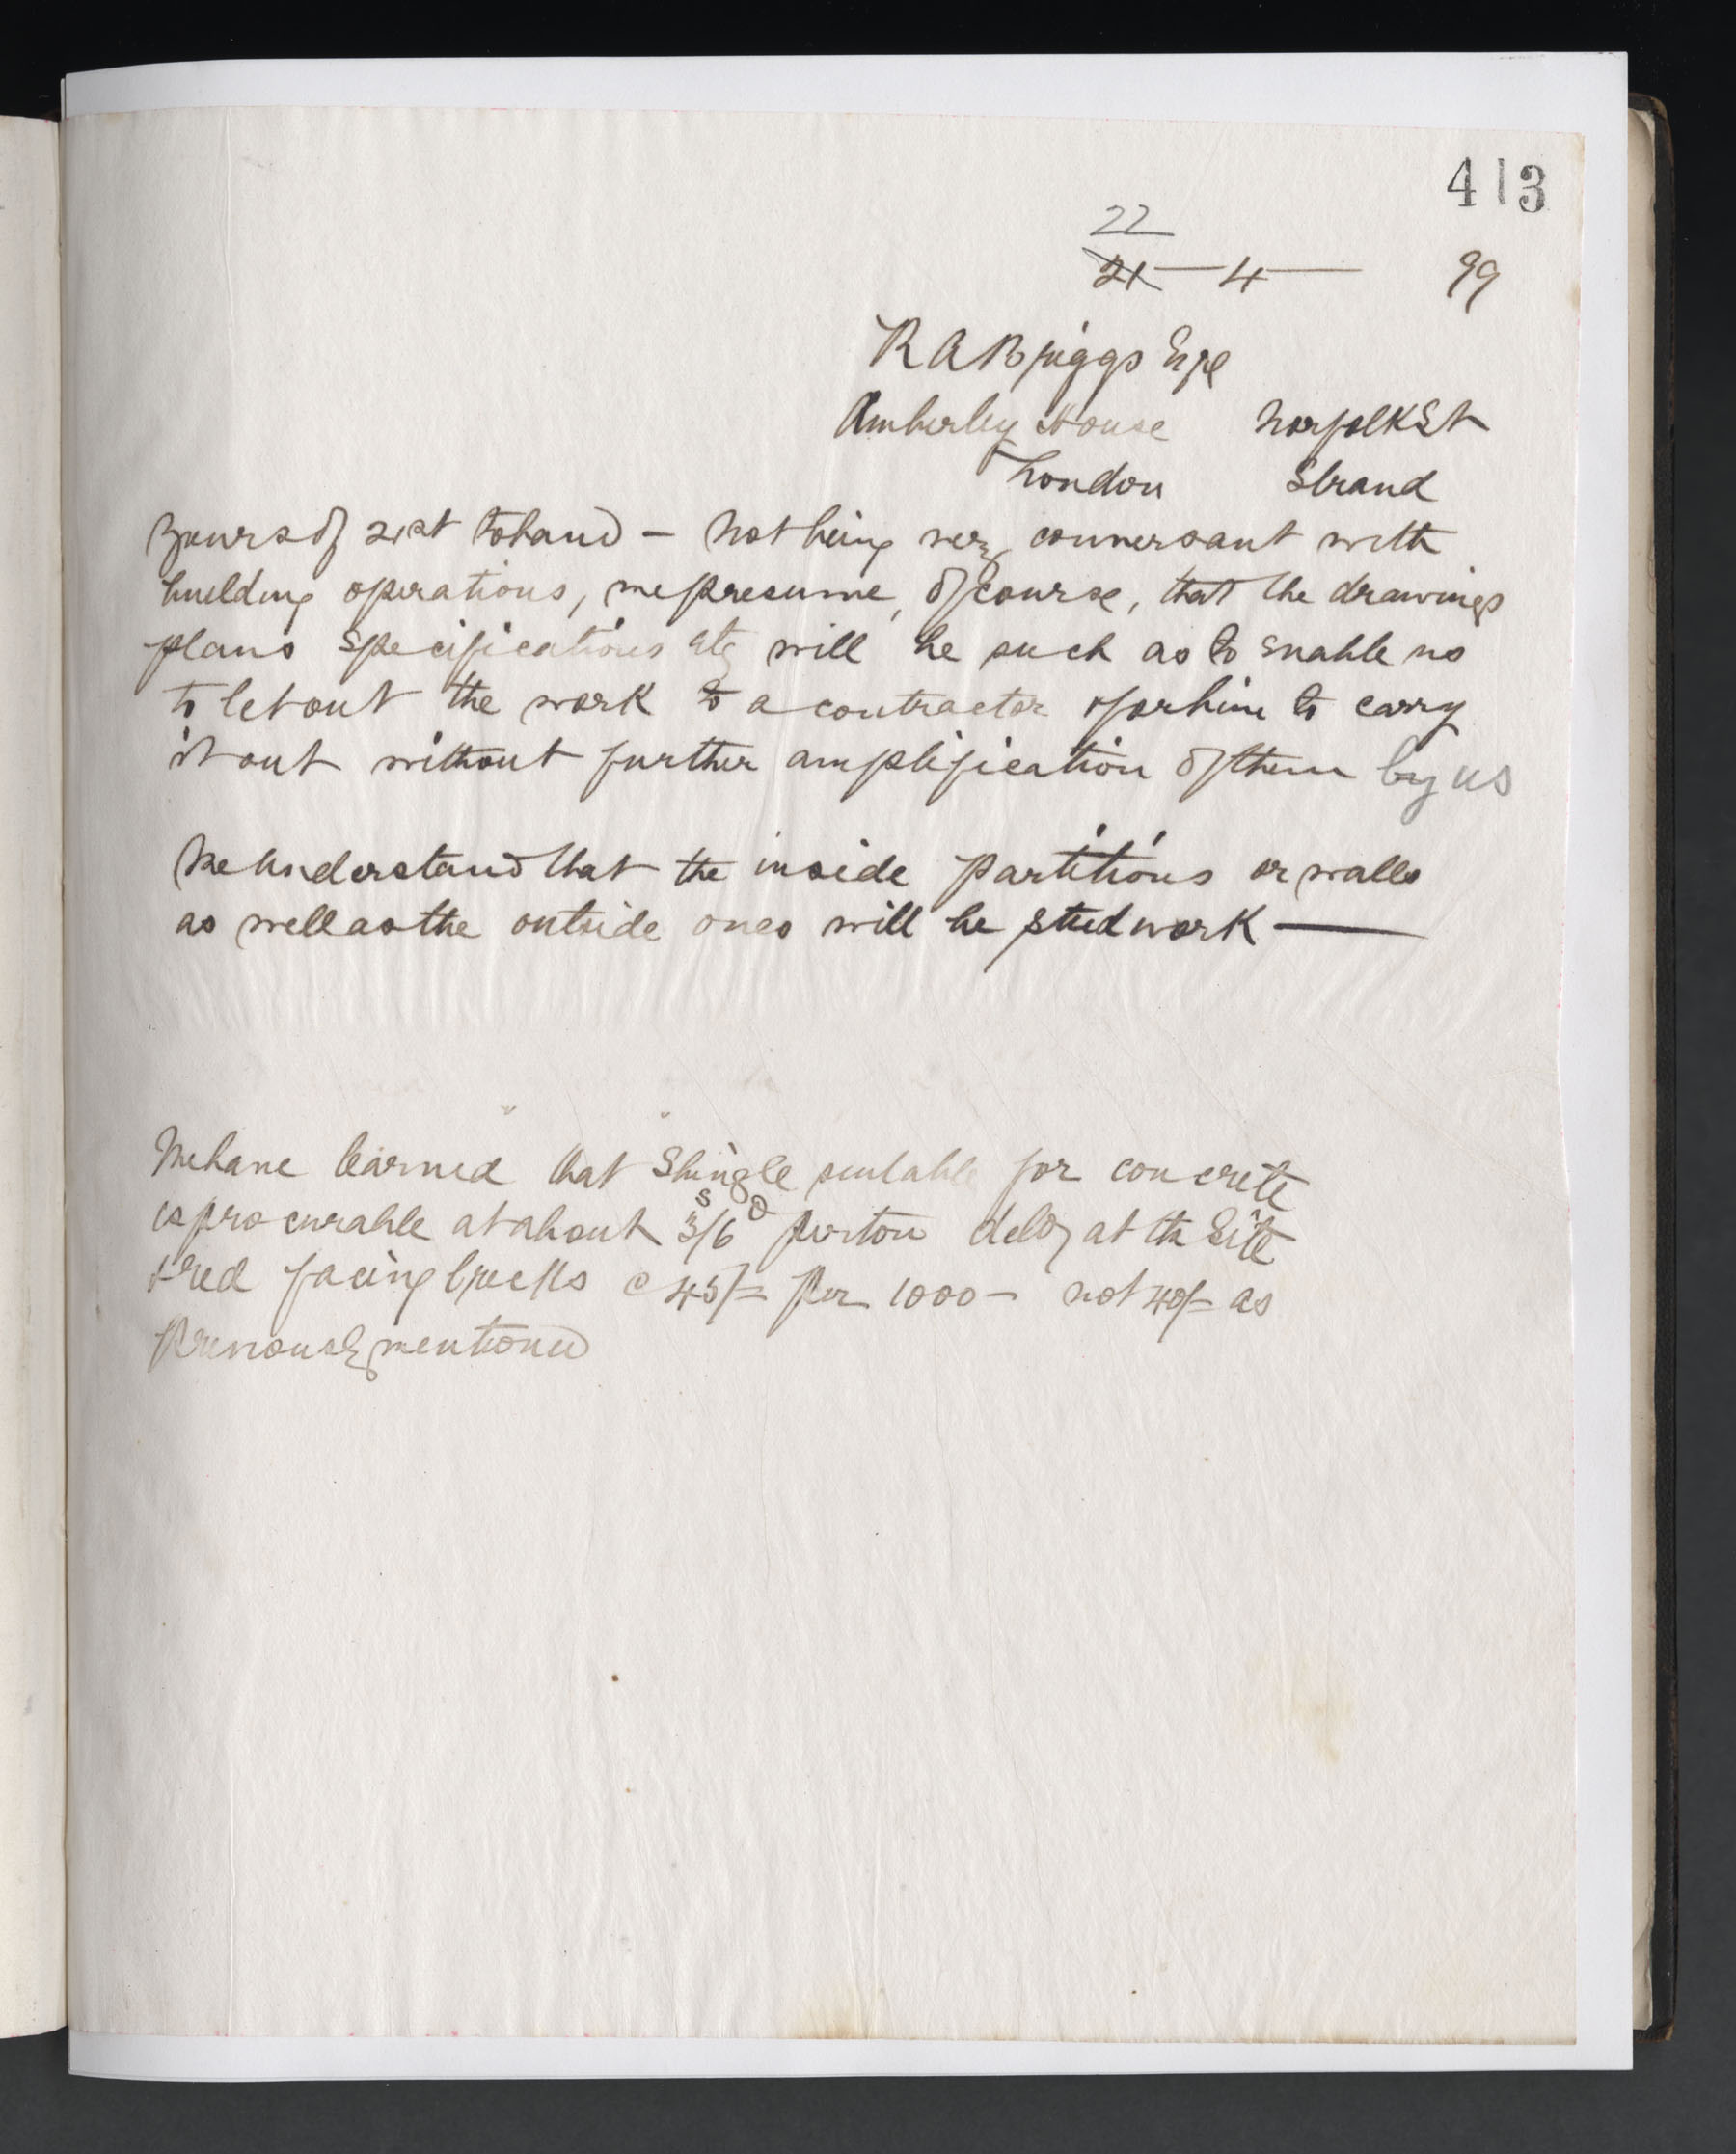 413
22
21 — 4 — 99
R A Briggs Esqe
Amberley House Norfolk St
London Strand
Yours of 21st to hand — Not being very conversant with
building operations, we presume, of course, that the drawings
plans specifications etc will be such as to enable us
to let out the work to a contractor & for him to carry
it out without further amplification of them by us
We understand that the inside partitions or walls
as well as the outside ones will be stud work —
We have learned that Shingle suitable for concrete
is procurable at about 3s/6d per ton deld at the Site
& red facing bricks @ 45/= per 1000 — not 40/= as
Previously mentioned